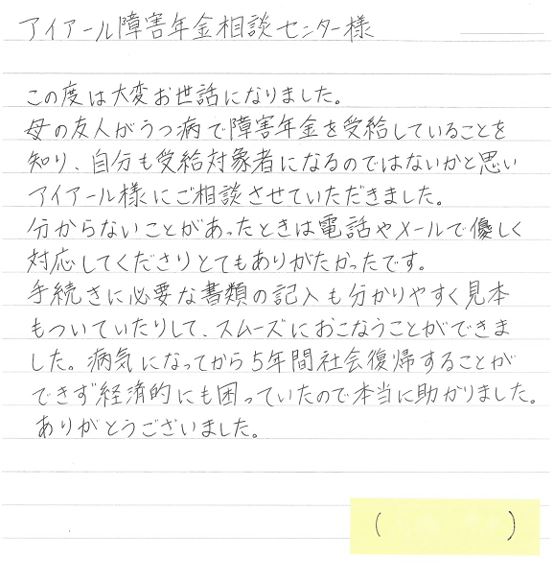 アイアール障害年金相談センター様
この度は大変お世話になりました。
母の友人がうつ病で障害年金を受給していることを
知り、自分も受給対象者になるのではないかと思い
アイアール様にご相談させていただきました。
分からないことがあったときは電話やメールで優しく
対応してくださりとてもありがたかったです。
手続きに必要な書類の記入も分かりやすく見本
もついていたりして、スムーズにおこなうことができま
した。病気になってから5年間社会復帰することが
できず経済的にも困っていたので本当に助かりました。
ありがとうございました。
( )